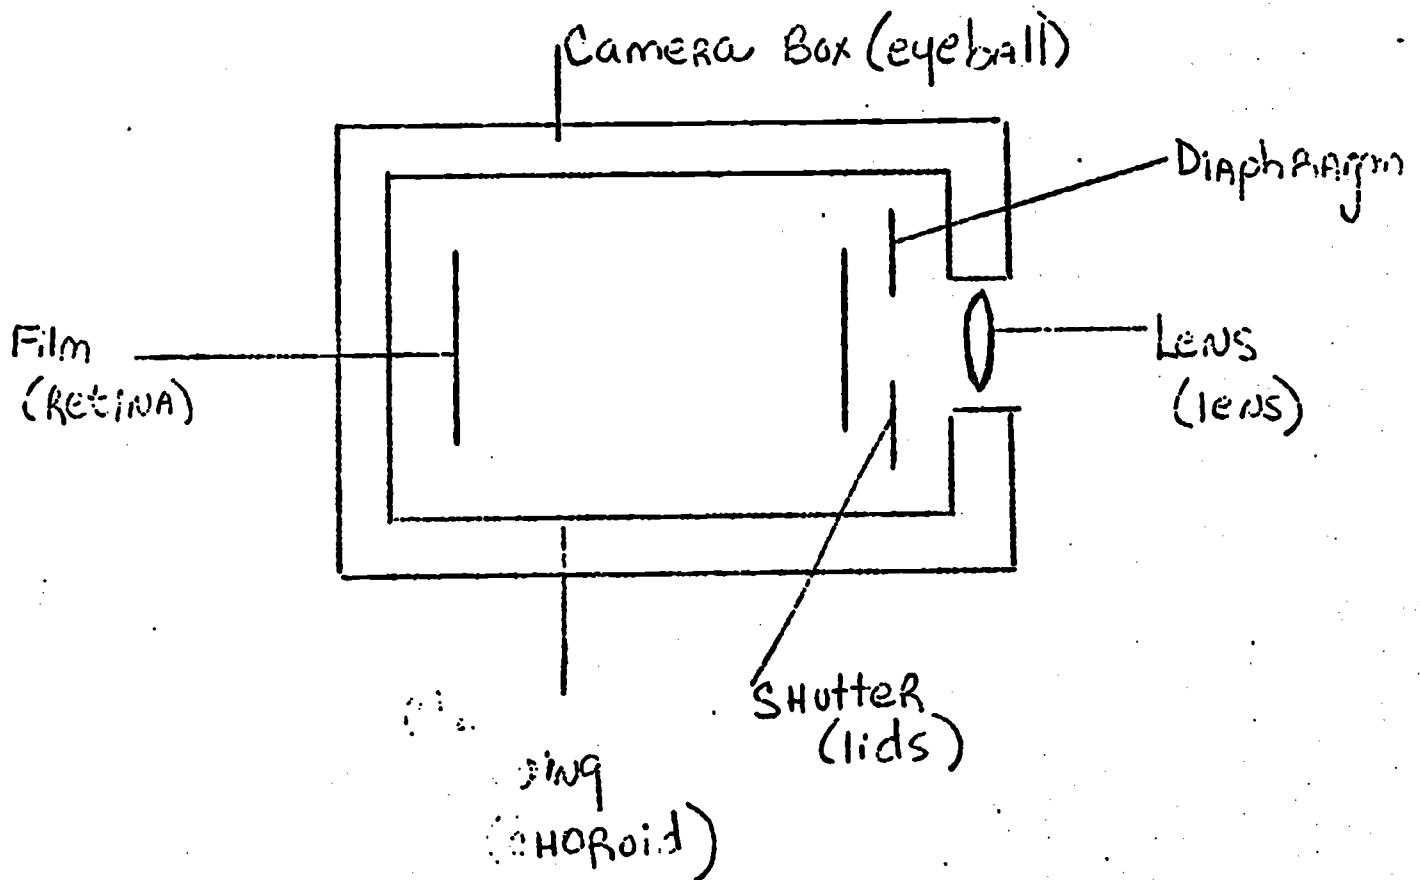 Camera Box (eyeball)
Diaphragm
Film
(Retina)
Lens
(lens)
Shutter
(lids)